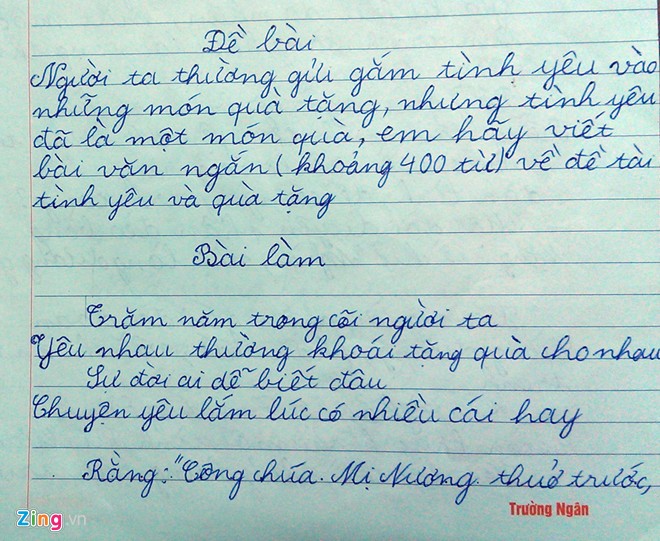 Đề bài
Người ta thường gửi gắm tình yêu vào
những món quà tặng, nhưng tình yêu
đã là một món quà, em hãy viết
bài văn ngắn (khoảng 400 từ) về đề tài
tình yêu và quà tặng
Bài làm
Trăm năm trong cõi người ta
Yêu nhau thường khoái tặng quà cho nhau
Sự đời ai dễ biết đâu
Chuyện yêu lắm lúc có nhiều cái hay
Rằng: "Công chúa Mị Nương thuở trước,
Trường Ngân
Zing.vn